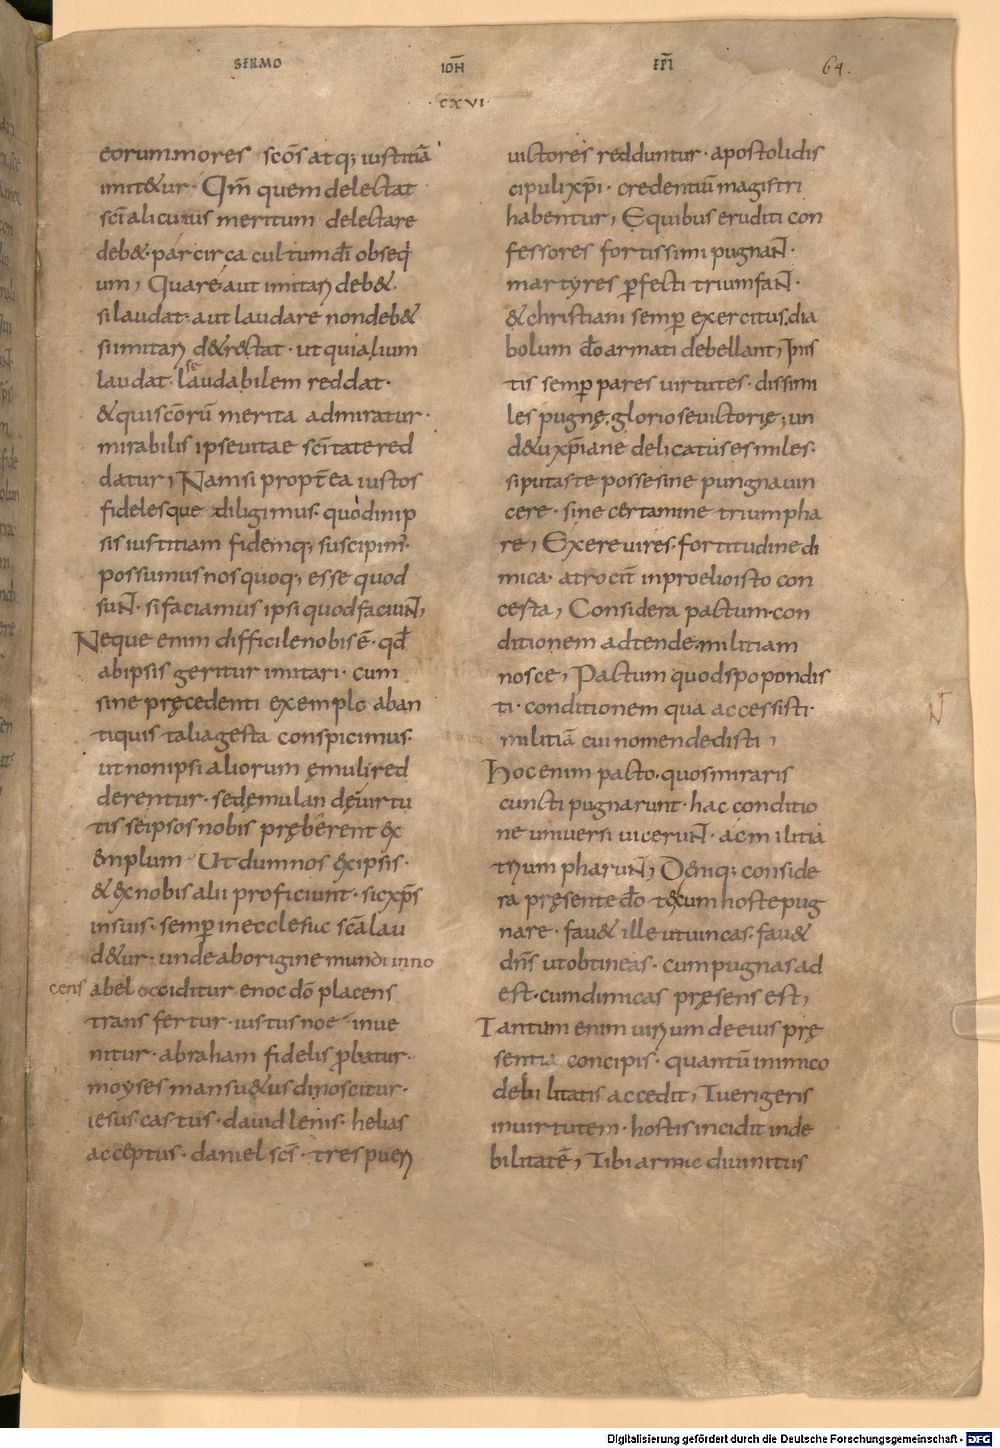 SERMO IOH̅ EP̅I 64.
·CXVI·
eorum mores sco̅s atq; iustitia̅
imit&ur · Qm̅ quem delectat
sci̅ alicuius meritum delectare
deb& · par circa cultum di̅ obseq
um, Quare aut imitari deb& ·
si laudat · aut laudare non deb&
si imitari d&rectat · ut qui alium
laudat · se laudabilem reddat ·
& qui sco̅rū merita admiratur ·
mirabilis ipse uitae sci̅tate red
datur, Nam si propt̅ea iustos
fidelesque diligimus · quod in ip
sis iustitiam fidemq; suscipim᾽ ·
possumus nos quoq; esse quod
suN̅ · si faciamus ipsi quod faciuN̅,
Neque enim difficile nobis e̅ · qd̅
ab ipsis geritur imitari · cum
sine pręcedenti exemplo ab an
tiquis talia gesta conspicimus ·
ut non ipsi aliorum ęmuli red
derentur · sed ęmulandę uirtu
tis se ipsos nobis pręberent ex
&mplum · Ut dum nos &x ipsis ·
& &x nobis alii proficiunt · sic xp̅s
in suis · semp̲ in ecclesiae sca̅ lau
d&ur · unde ab origine mundi inno
cens abel occiditur · enoc do̅ placens
transfertur · iustus noe inue
nitur · abraham fidelis p̲batur ·
moyses mansu&us dinoscitur ·
iesus castus · dauid lenis · helias
acceptus · daniel scs̅ · tres pueri
uictores redduntur · apostoli dis
cipuli xp̅i · credentiū magistri
habentur, E quibus eruditi con
fessores fortissimi pugnaN̅ ·
martyres p̲fecti triumfaN̅ ·
& christiani semp̲ exercitus dia
bolum do̅ armati debellant, In is
tis semp̲ pares uirtutes · dissimi
les pugnę, gloriose uictorię; un
d& u xp̅iane delicatus es miles ·
si putas te posse sine pungna uin
cere · sine certamine triumpha
re, Exere uires · fortitudine di
mica · atrocit̅ in proelio isto con
certa, Considera pactum · con
ditionem adtende · militiam
nosce, Pactum quod spopondis
ti · conditionem qua accessisti ·
militiā cui nomen dedisti,
Hoc enim pacto · quos miraris
cuncti pugnarunt · hac conditio
ne uniuersi uiceruN̅ · ac militia
triumpharuN̅, D&niq; conside
ra pręsente do̅ tęcum hoste pug
nare · fau& ille ut uincas · fau&
dn̅s ut obtineas · cum pugnas ad
est · cum dimicas pręsens est,
Tantum enim uirium de eius prę
sentia concipis · quantū inimico
debilitatis accedit, Tu erigeris
in uirtutem · hostis incidit in de
bilitatē, Tibi armic diuinitus
N
Digitalisierung gefördert durch die Deutsche Forschungsgemeinschaft - DFG